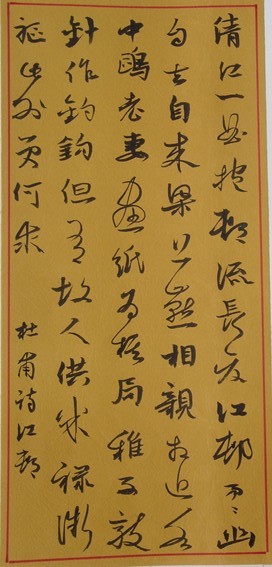 清江一曲抱邨流長夏江邨事〻幽
自去自来梁上燕相親相近水
中鷗老妻畫紙為棋局稚子敲
針作釣鈎但有故人供米禄微
軀此外更何求 杜甫詩江邨